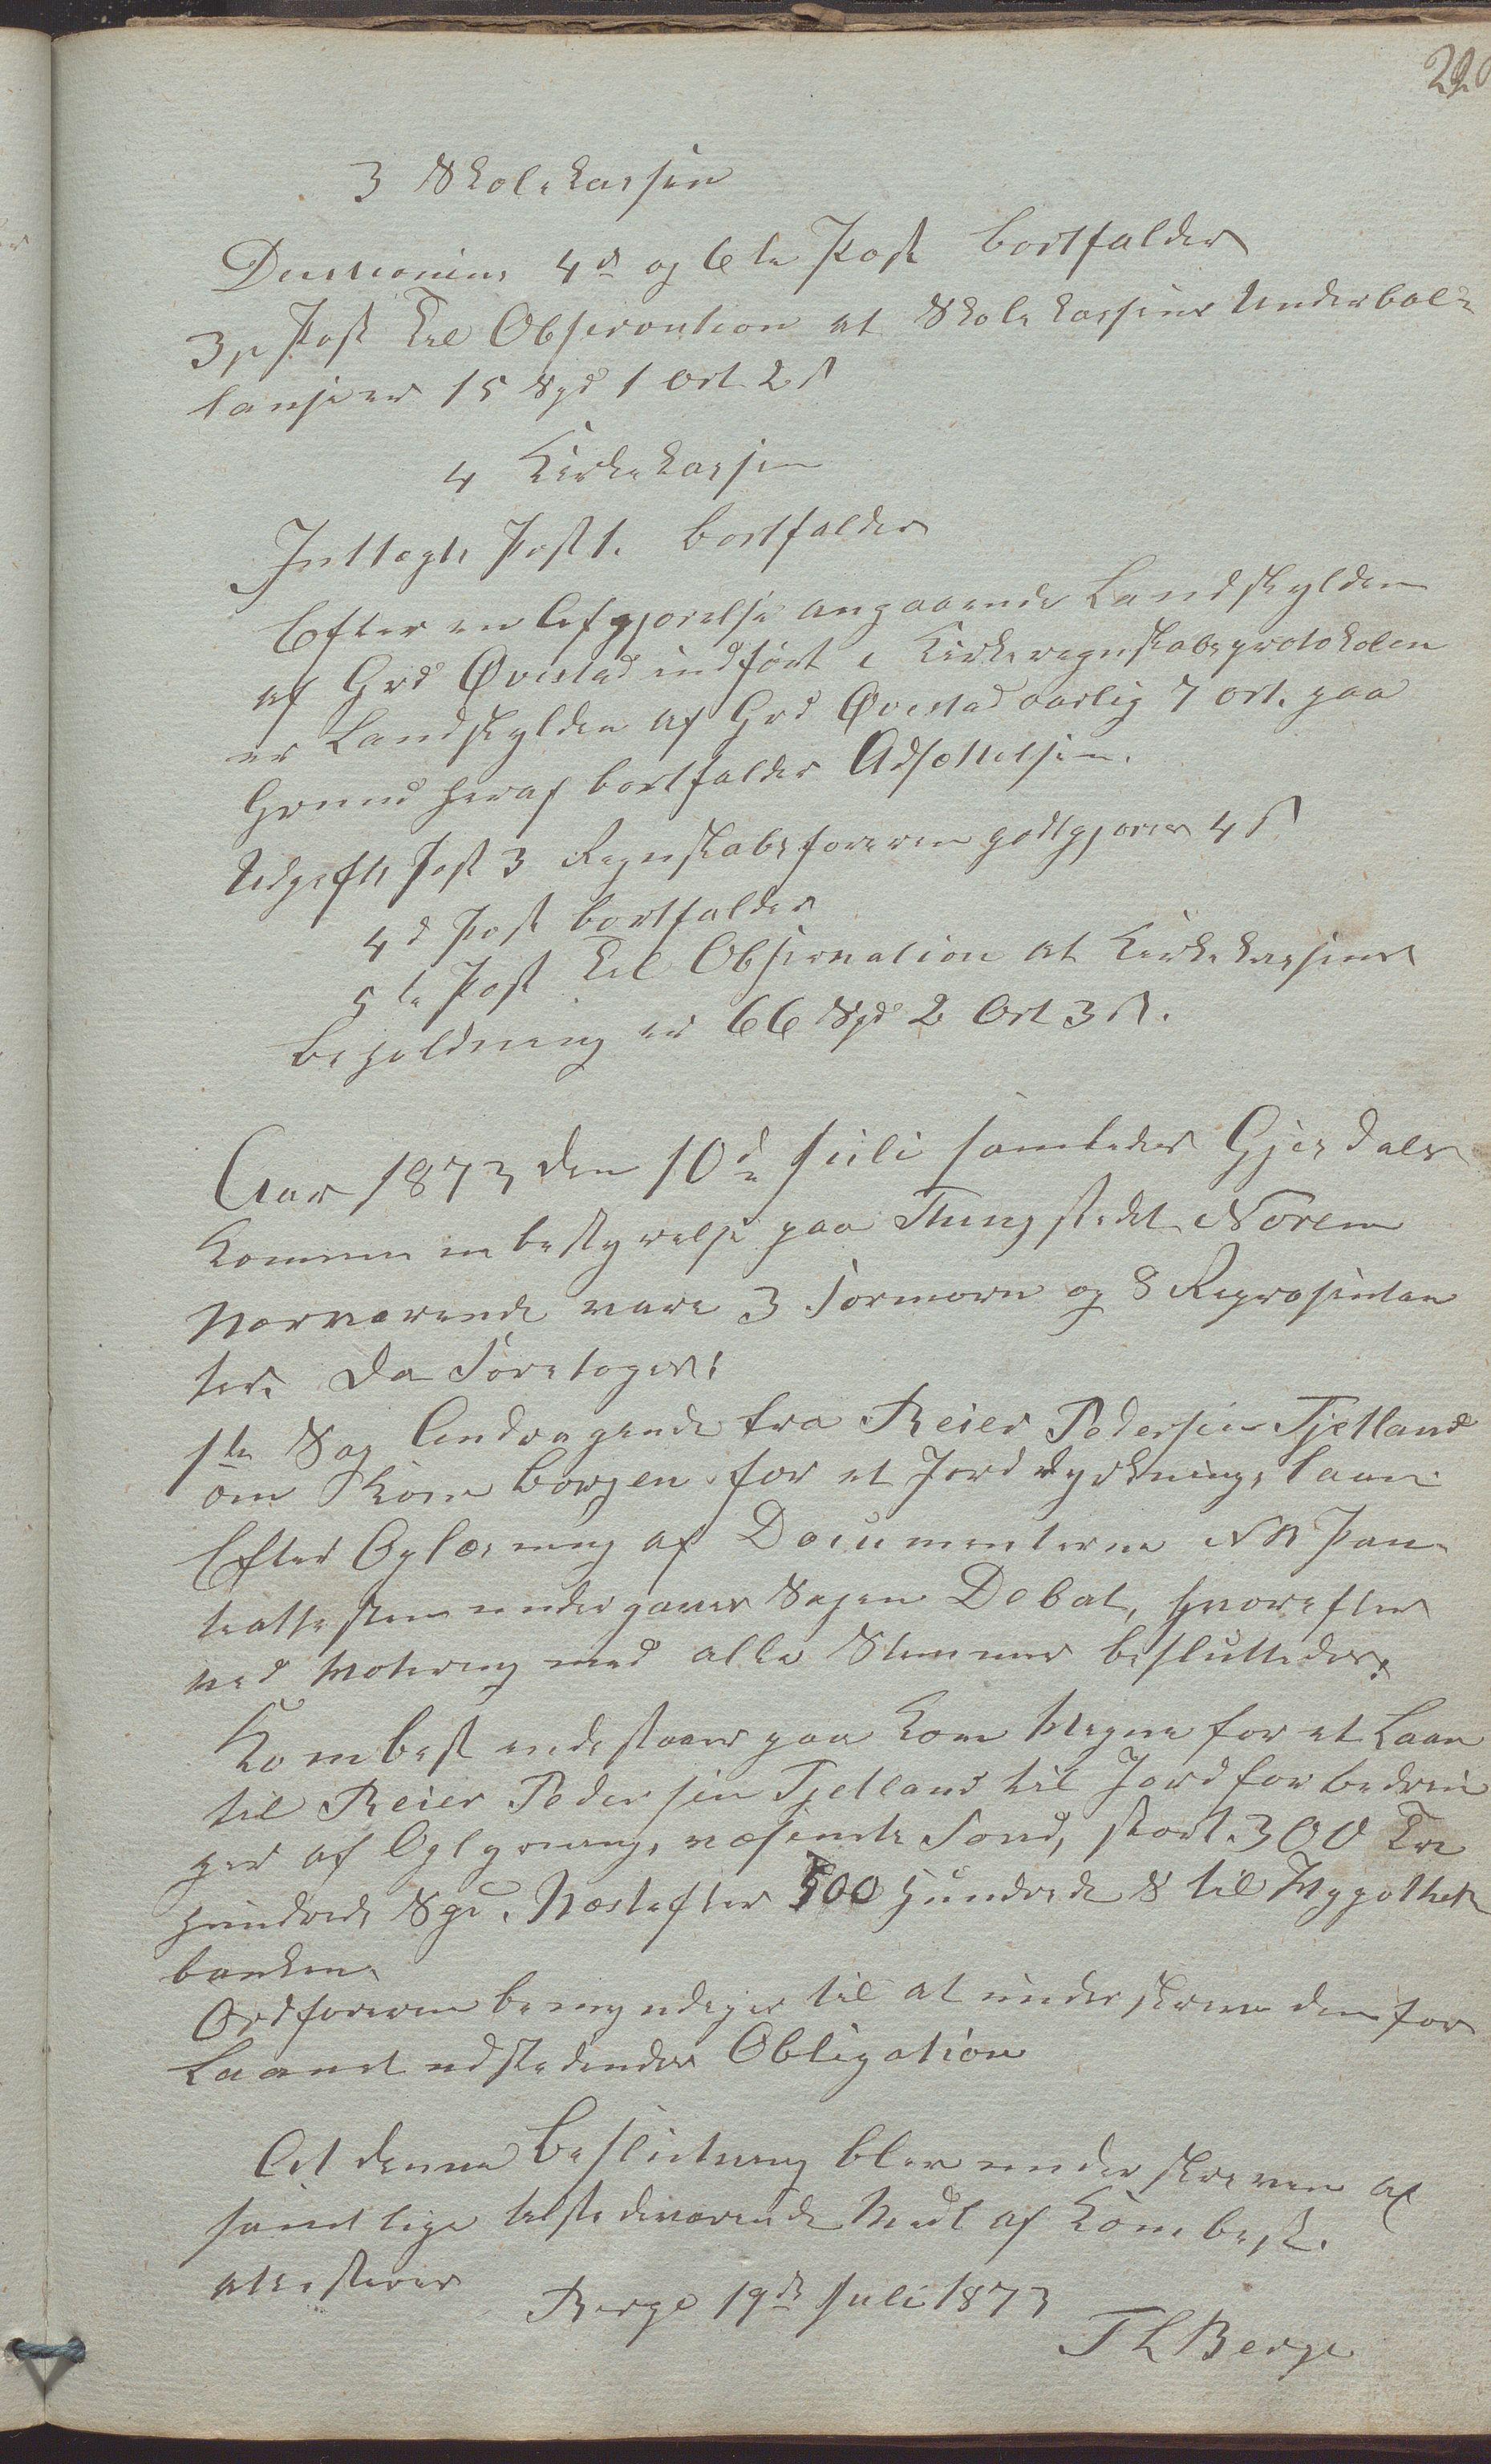 220
3 Skolekassen
4de og 6te Post bortfalder
3je Post Til Observation at Skolekassens Underbal-
lanse er 15 Spd 1 Ort 2 ß
4 Kirkekassen
Inttægts Post 1. bortfalder
Efter en Afgjørelse angaaende Landskylden
af Grd Øvestad indført i Kirkeregnskabsprotokolen
er Landskylden af Grd Øvestad aarlig 7 ort. paa
Grund heraf bortfalder Udsættelsen.
Udgifts Post 3 Regnskabsføreren godtgjøres 4 ß
4d Post bortfalder
5te Post Til Observation at Kirkekassens
Beholdning er 66 Spd 2 Ort 3 ß.
Aar 1873 den 10de Juli samledes Gjesdals
Kommunebestyrelse paa Thingstedet Noren
Nærværende vare 3 Formæn og 8 Repræsentan
ter. Da Foretoges:
1te Sag Andragende fra Reier Pedersen Tjetland
om Kom borgen for et Jorddyrknings laan
Efter Oplæsning af Documenterne NB Pan-
teattesten undergaves Sagen Debat, hvorefter
ved Votering med alle Stemmer besluttedes:
Kombest indestaaer paa Kom Vegne for et Laan
til Reier Pedersen Tjetland til Jordforbedrin
ger af Oplysnings væsenets Fond, stort 300 Tre
hundrede Spd. Næstefter 500 Hundrede S til Hypothek
banken.
Ordføreren bemyndiges til at underskrive den for
Laanet udstedendes Obligation
At denne Beslutning blev underskreven af
samtlige tilstedeværende Medl af Kom best.
attesteres
Berge 19de Juli 1873
T L Berge